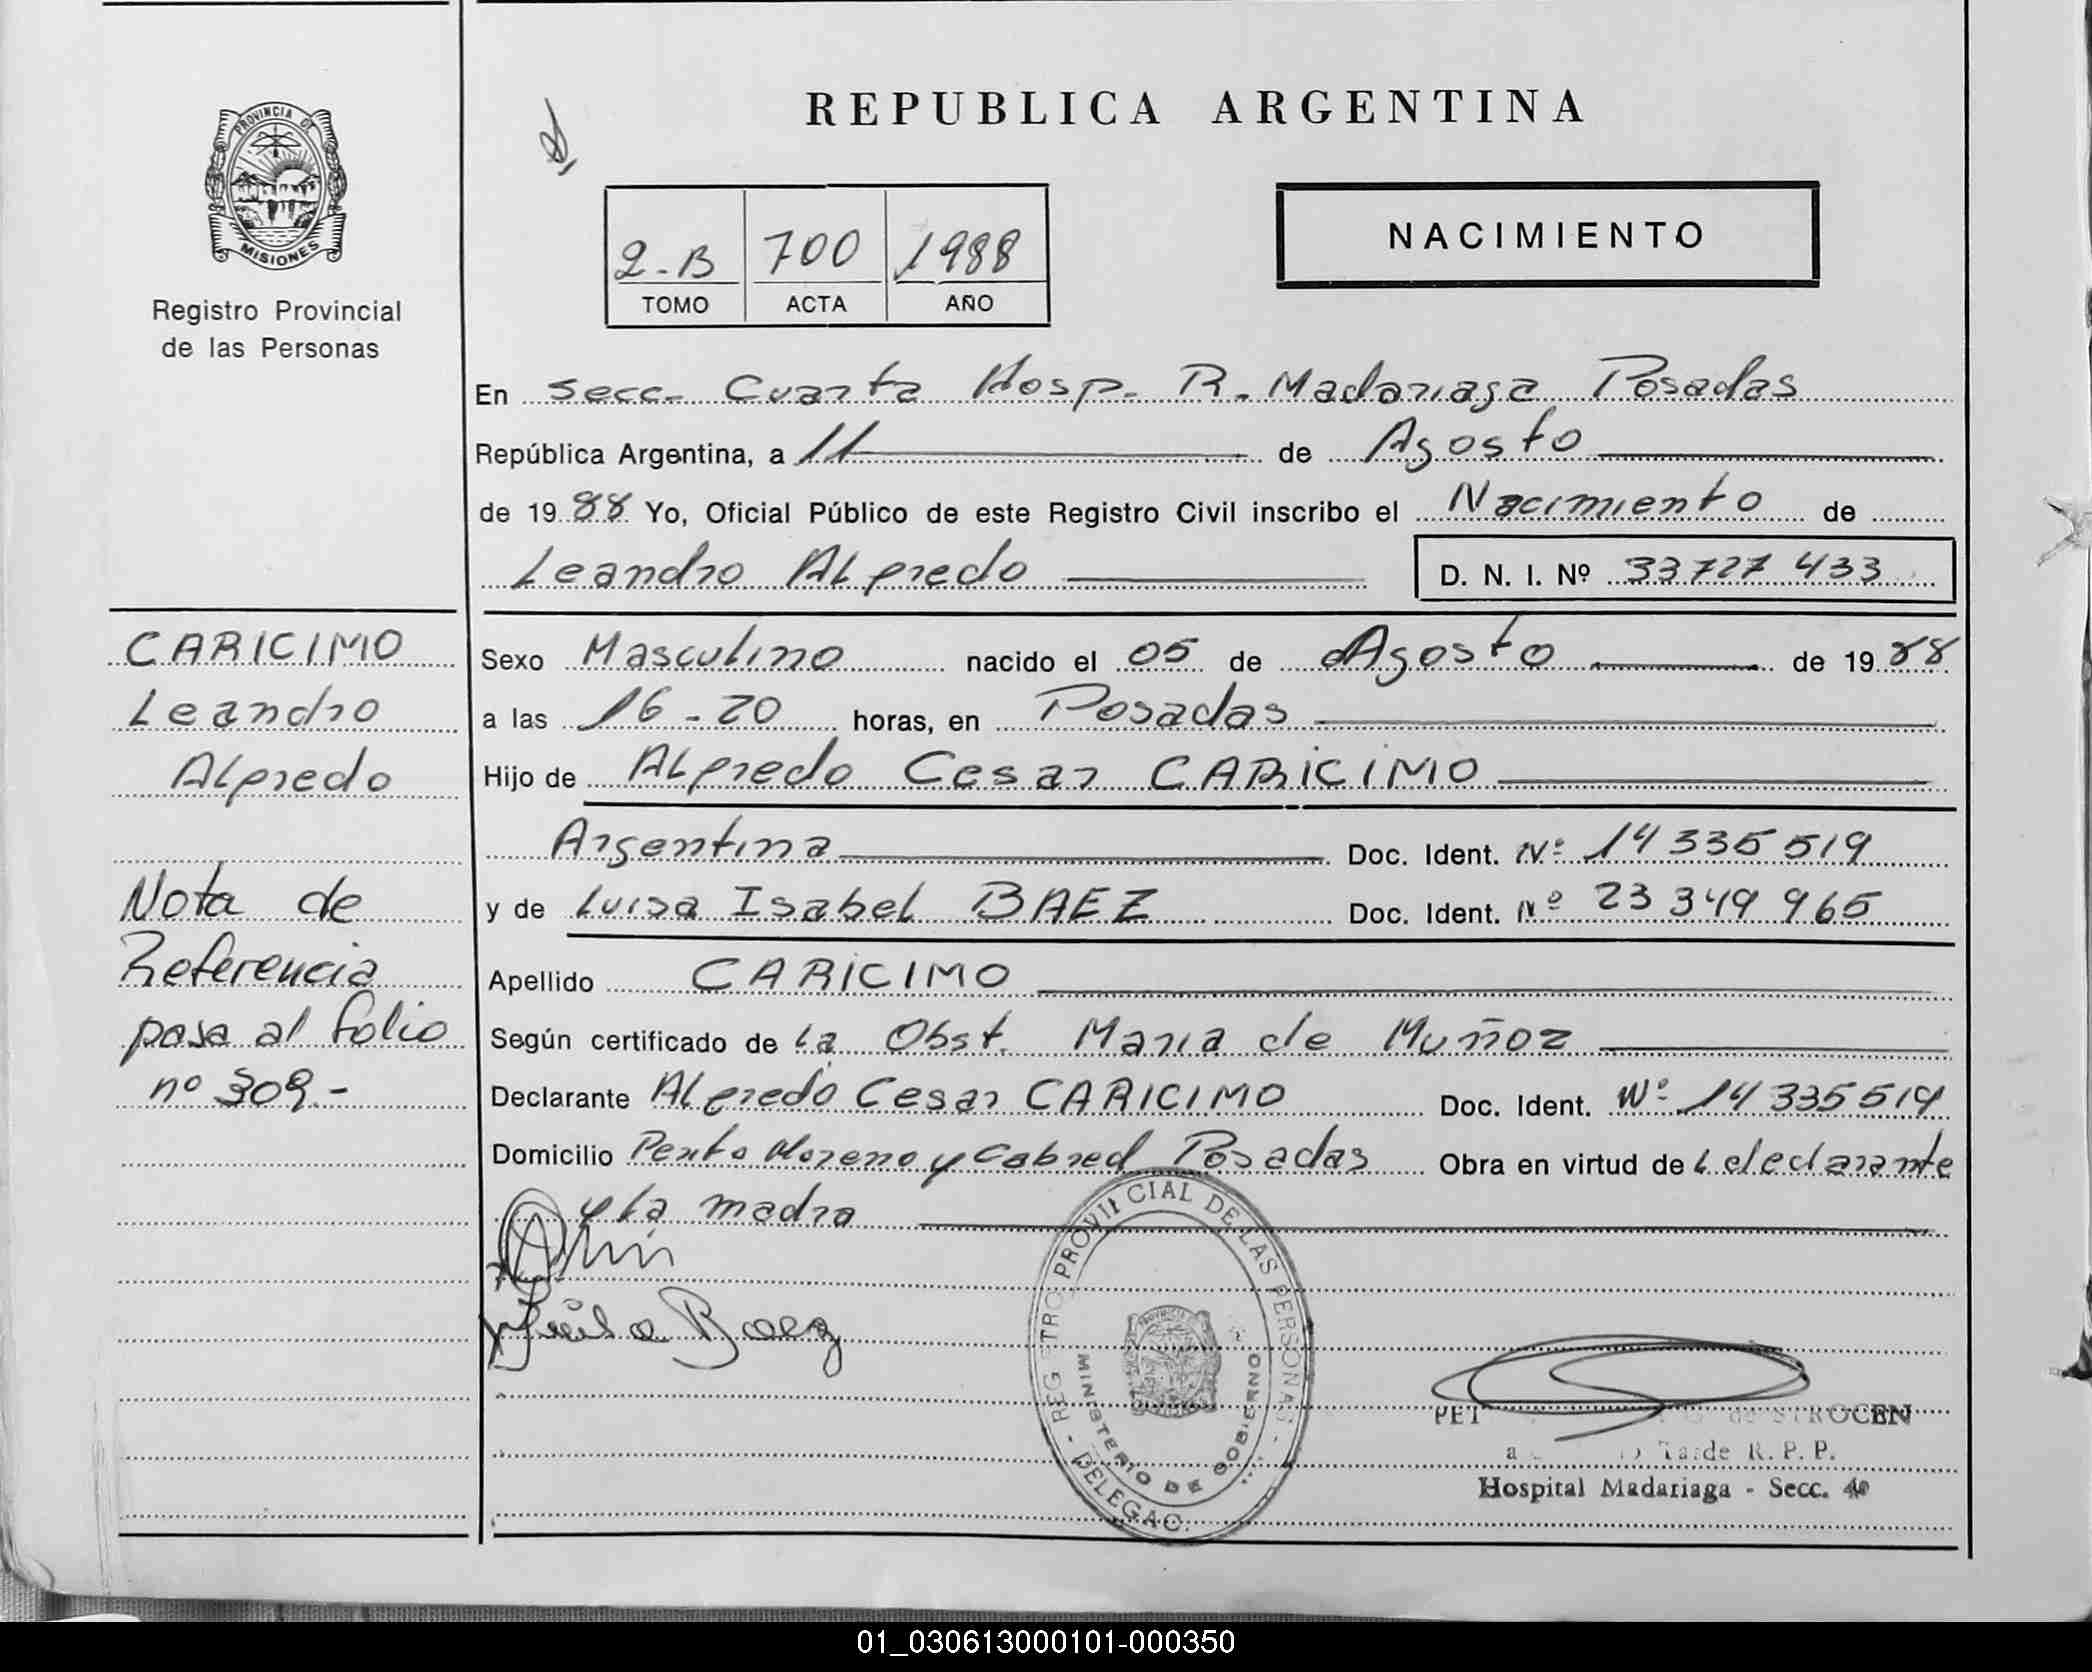 REPUBLICA ARGENTINA
PROVINCIA DE
MISIONES
Registro Provincial
de las Personas
2-B 700 1988
TOMO ACTA AÑO
NACIMIENTO
En Secc- Cuarta Hosp. R. Madariaga Posadas
República Argentina, a 11 de Agosto
de 1988 Yo, Oficial Público de este Registro Civil inscribo el Nacimiento de
Leandro Alfredo D. N. I. Nº 33727 433
CARICIMO
Leandro
Alfredo
Nota de
Referencia
pasa al folio
nº 309.-
Sexo Masculino nacido el 05 de Agosto de 1988
a las 16-20 horas, en Posadas
Hijo de Alfredo Cesar CARICIMO
Argentina Doc. Ident. Nº 14 335 519
y de Luisa Isabel BAEZ Doc. Ident. Nº 23 349 965
Apellido CARICIMO
Según certificado de la Obst. Maria de Muñoz
Declarante Alfredo Cesar CARICIMO Doc. Ident. Nº 14 335 519
Domicilio Moreno y Cabred Posadas Obra en virtud de declarante
y la madre
Luisa Baez
REGISTRO PROVINCIAL DE LAS PERSONAS - DELEGAC.
MINISTERIO DE GOBIERNO
PET de STROCEN
Tarde R. P. P.
Hospital Madariaga - Secc.
01_030613000101-000350